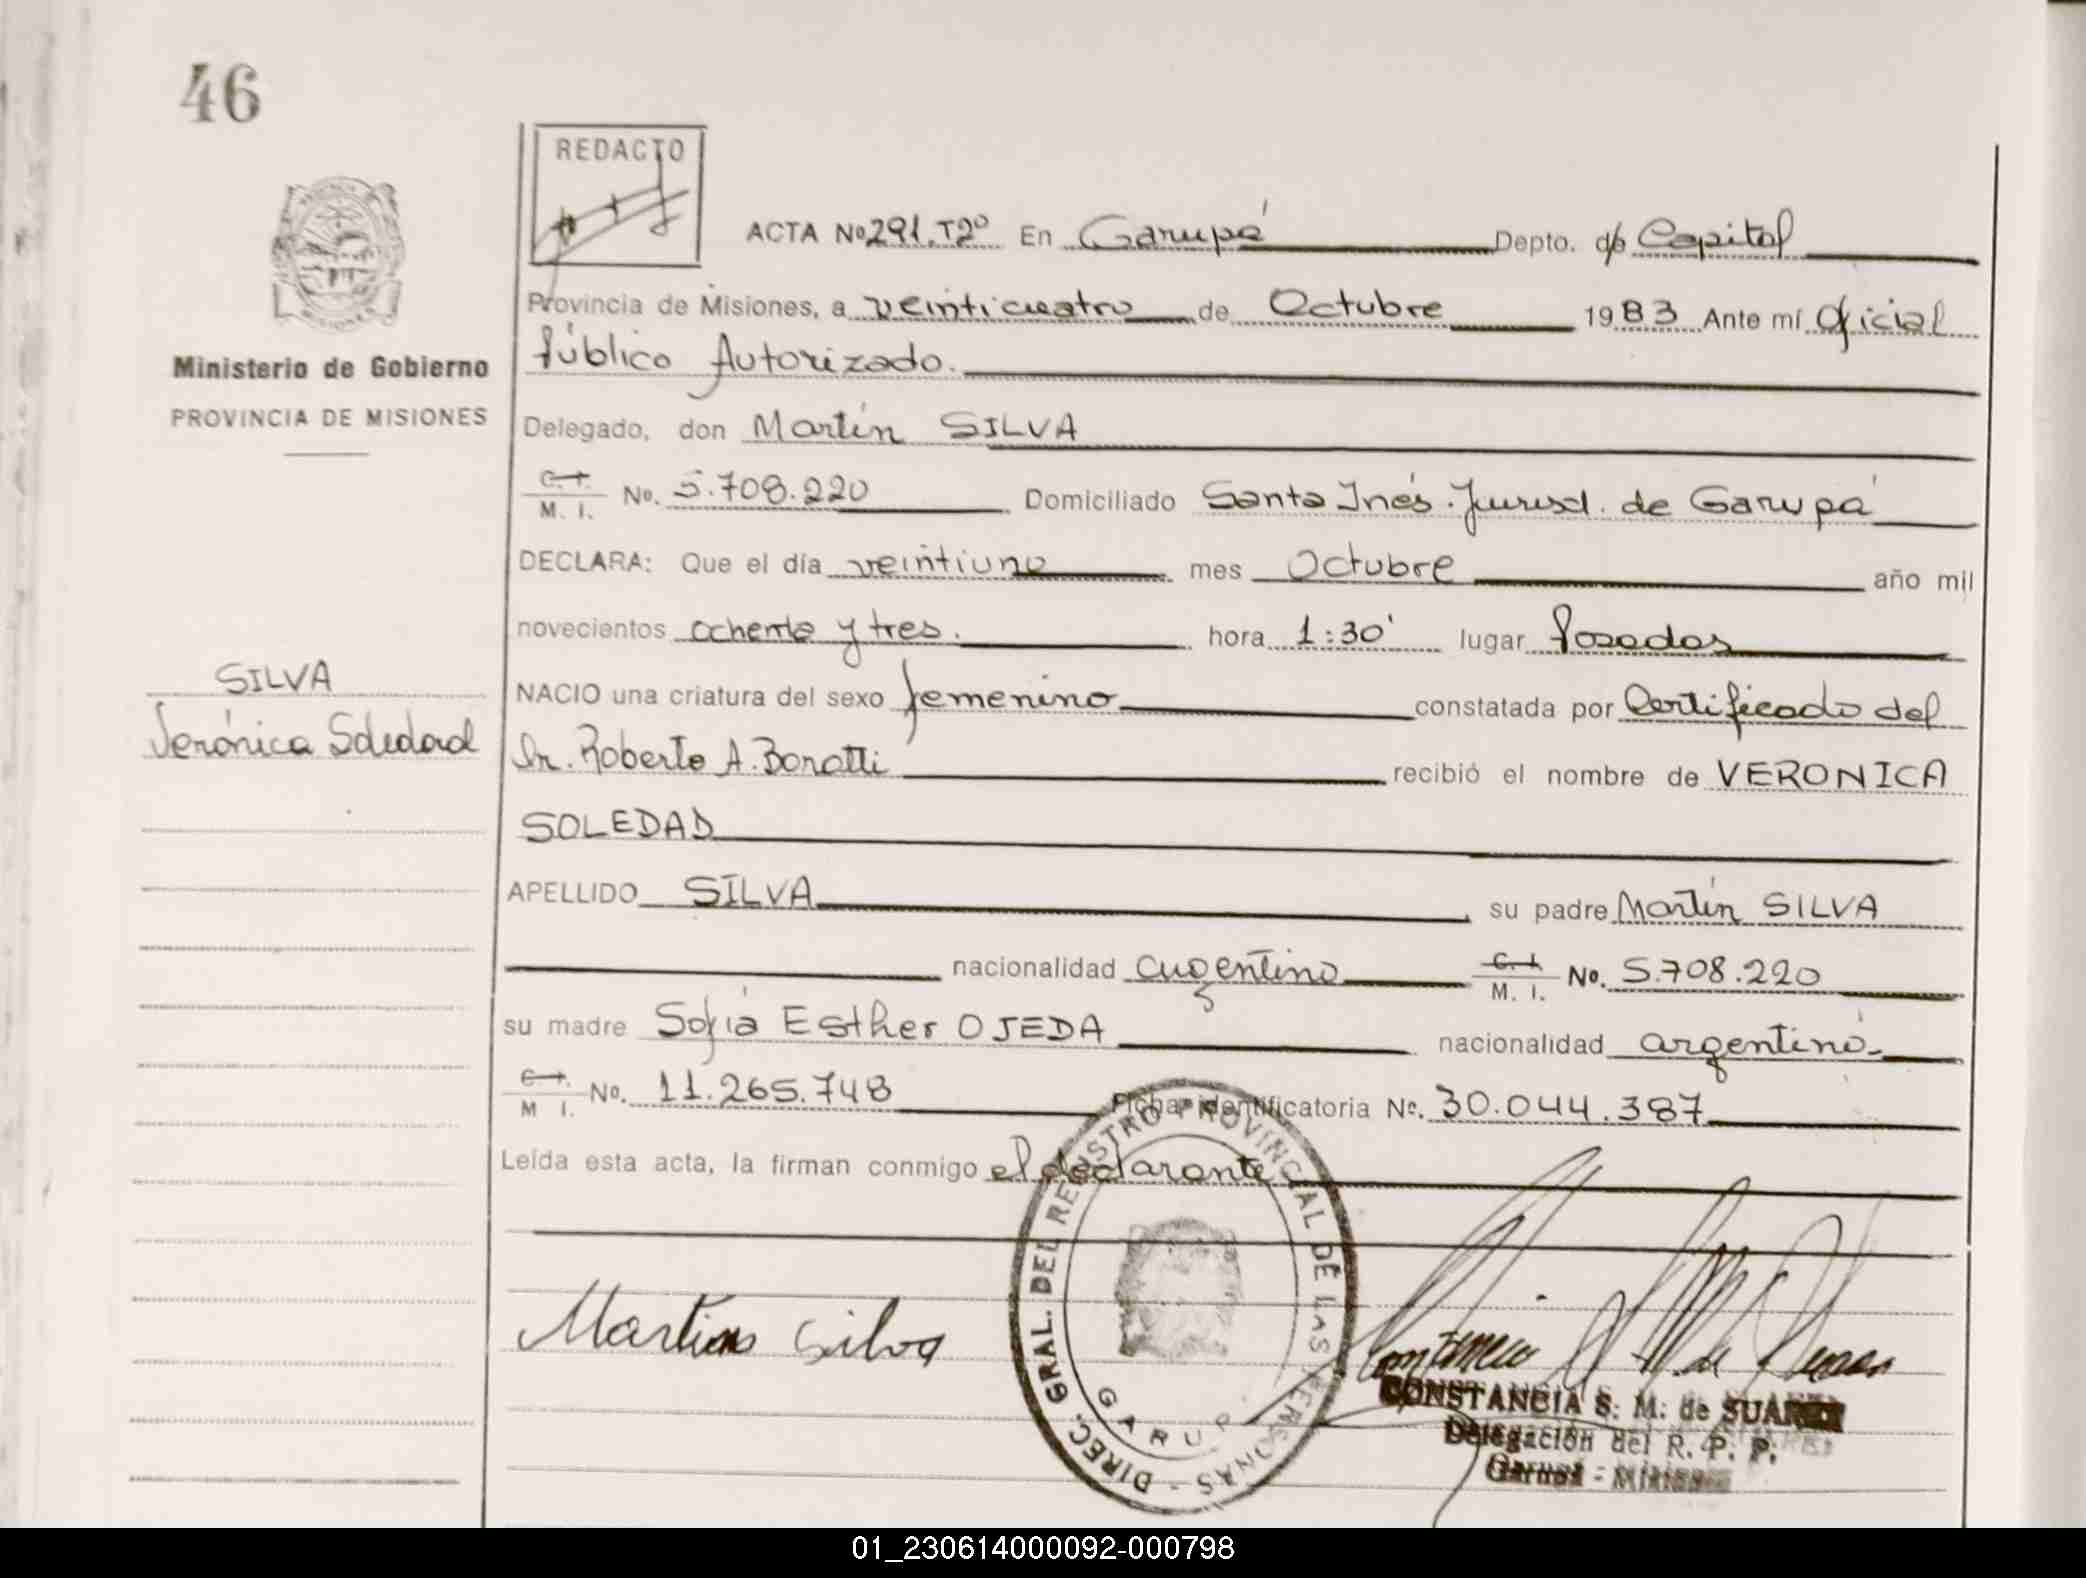 46
REDACTO
ACTA No 291. T2º En Garupá Depto. de Capital
Provincia de Misiones, a veinticuatro de Octubre 1983 Ante mí Oficial
Público Autorizado.
Ministerio de Gobierno
PROVINCIA DE MISIONES
Delegado, don Martín SILVA
C. I. M. I. No. 5.708.220 Domiciliado Santa Inés. Jurisd. de Garupá
DECLARA: Que el día veintiuno mes Octubre año mil
novecientos ochenta y tres. hora 1:30' lugar Posadas
SILVA
NACIO una criatura del sexo femenino constatada por Certificado del
Verónica Soledad
Dr. Roberto A. Boratti recibió el nombre de VERONICA
SOLEDAD
APELLIDO SILVA su padre Martín SILVA
nacionalidad argentino C. I. M. I. No. 5.708.220
su madre Sofía Esther OJEDA nacionalidad argentina
C. I. M I. No. 11.265.748 Ficha identificatoria No. 30.044.387
Leída esta acta, la firman conmigo el declarante
DIREC. GRAL. DEL REGISTRO PROVINCIAL DE LAS PERSONAS -
GARUP
Martin Silva
CONSTANCIA S. M. de SUAREZ
Delegación del R. P. P.
Garupá - Misiones
01_230614000092-000798